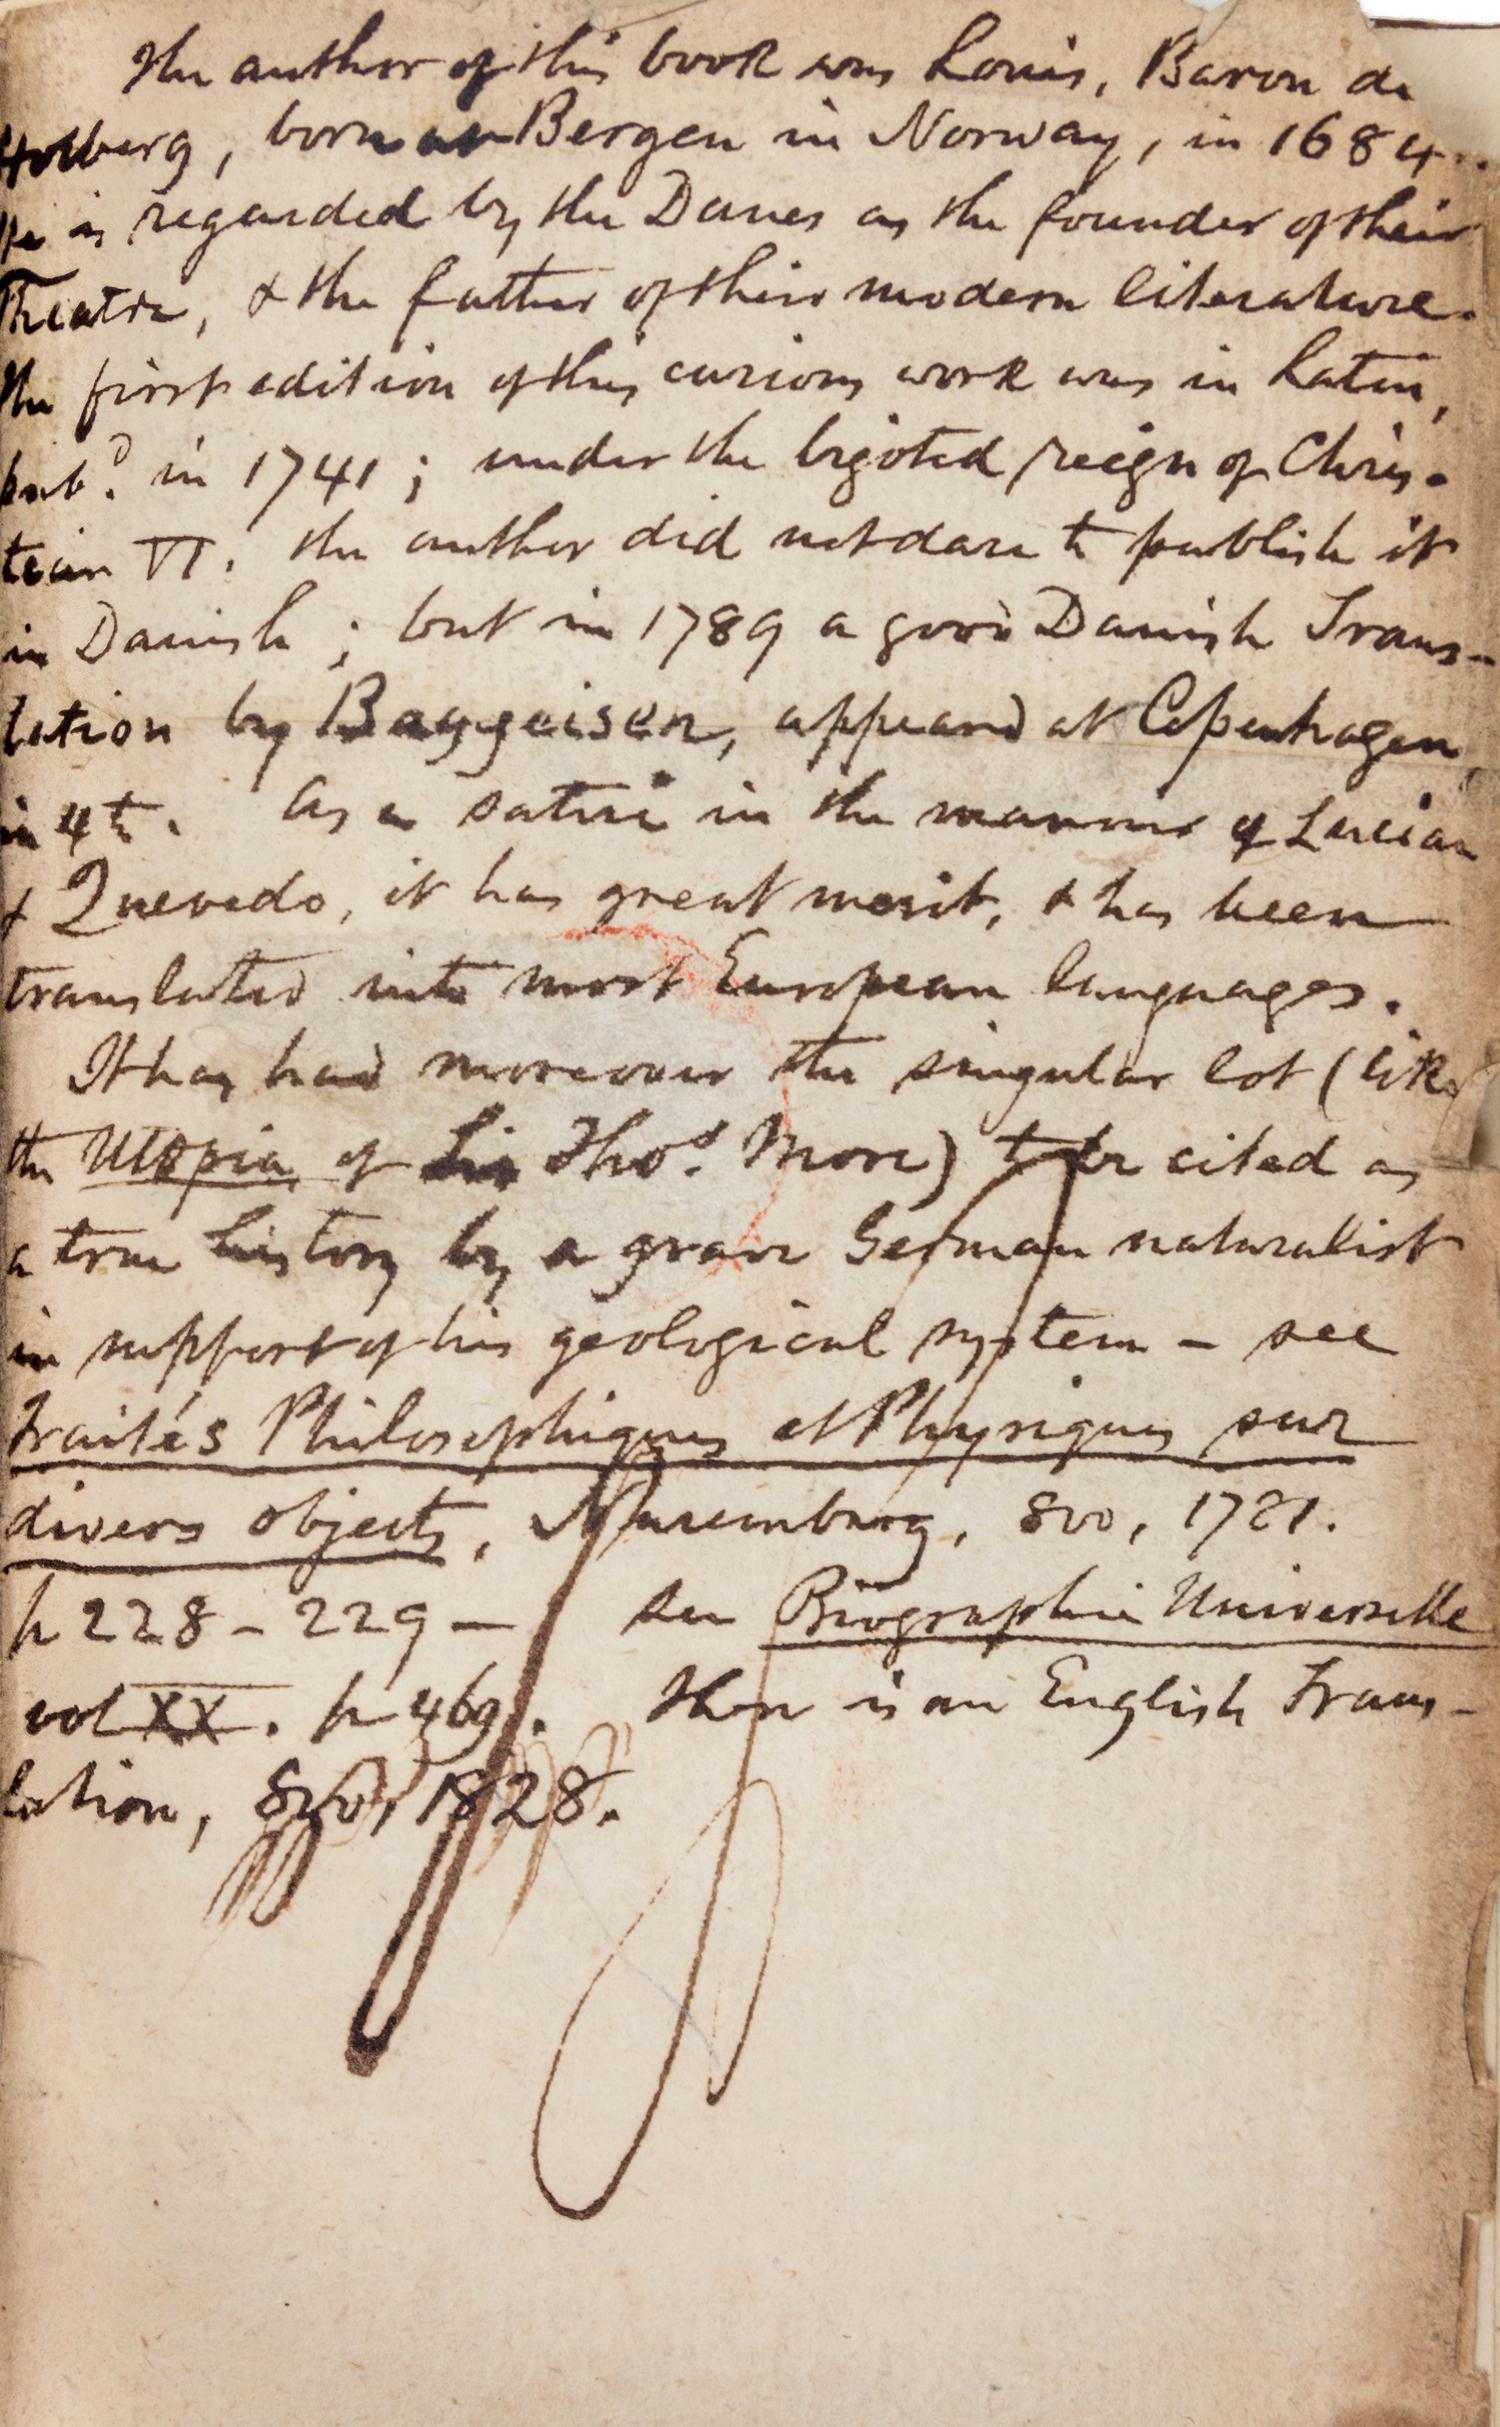 The author of this book was Louis, Baron de
Holberg, born at Bergen in Norway, in 1684.
He is regarded by the Danes as the founder of their
Theatre, & the father of their modern literature.
The first edition of this curious work was in Latin,
pubd. in 1741; under the bigoted reign of Chris-
tian VI. the author did not dare to publish it
in Danish; but in 1789 a good Danish Trans-
lation by Baggeisen, appeard at Copenhagen,
in 4to. As a satire in the manner of Lucian
& Quevedo, it has great merit, & has been
translated into most European languages.
It has had moreover the singular lot (like
the Utopia of Sir Thos. More) to be cited as
a true history by a grave German naturalist
in support of his geological system - see
Traités Philosophiques et Physiques sur
divers objects, Nuremburg, 8vo, 1781.
p 228 - 229 - see Biographie Universelle
vol XX. p 469. There is an English Trans-
lation, 8vo, 1828.